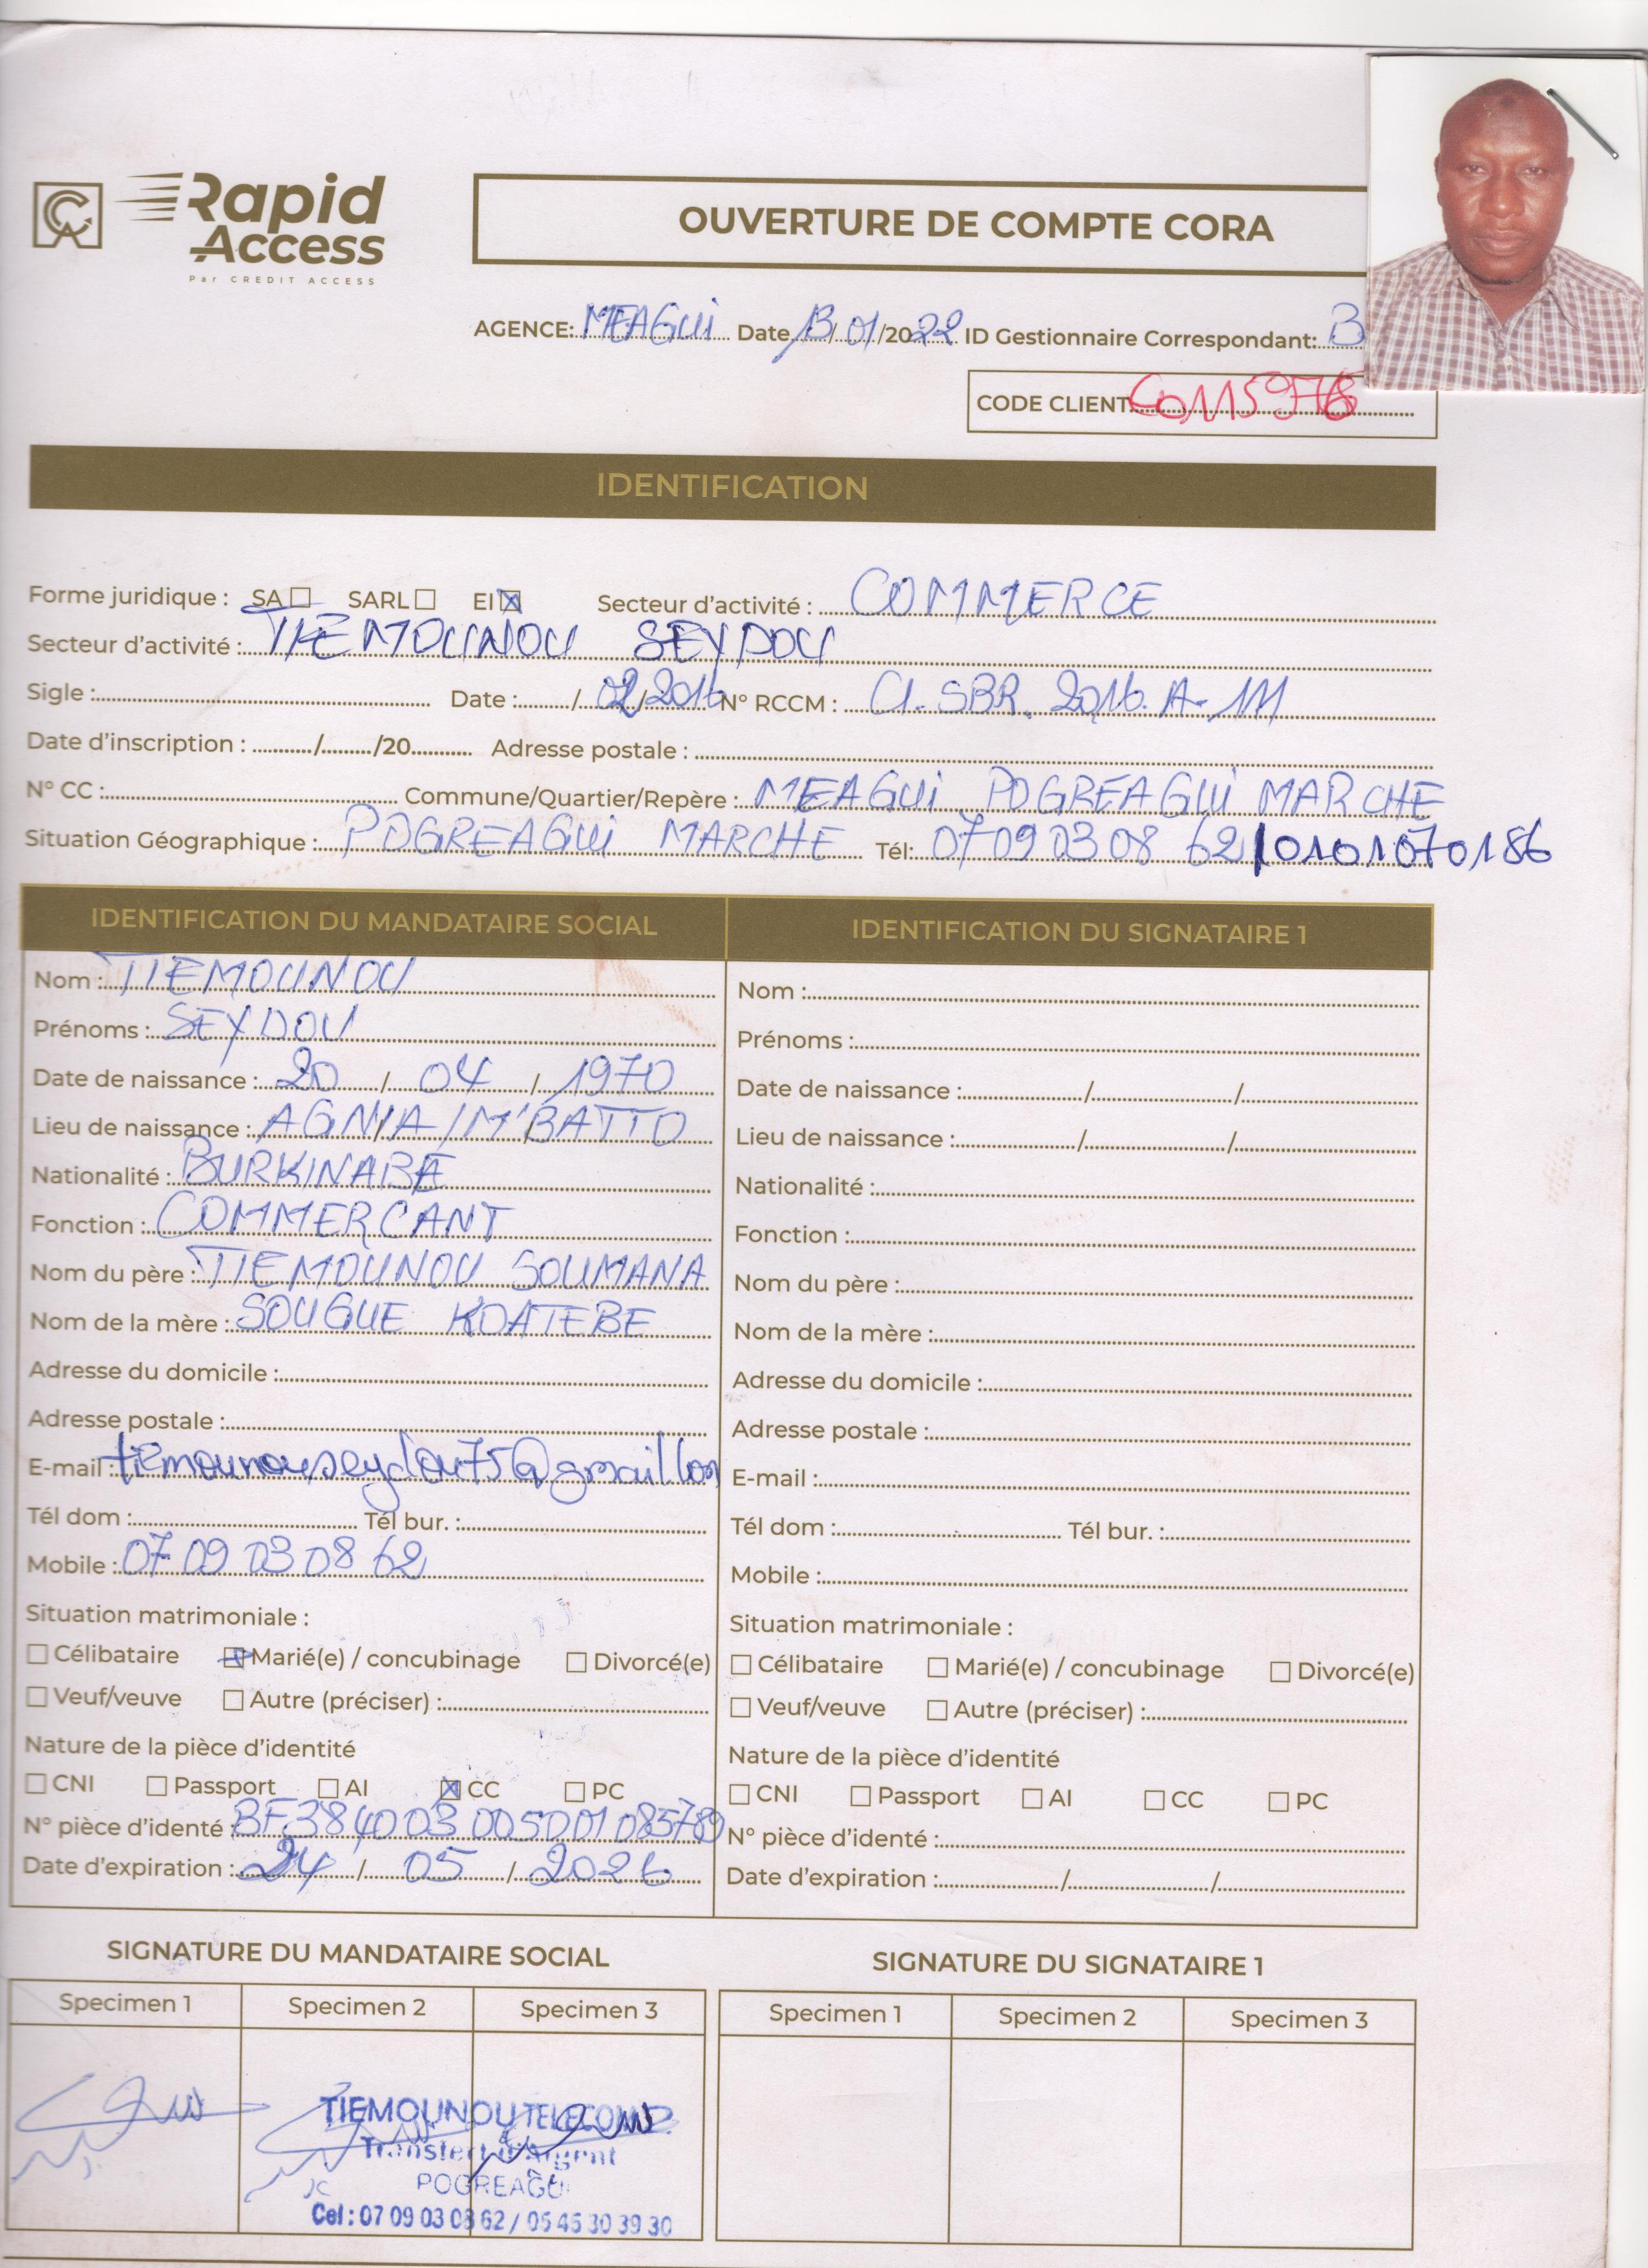 Rapid
Access
Par CREDIT ACCESS
OUVERTURE DE COMPTE CORA
AGENCE: MEAGUI Date 13/01/2022 ID Gestionnaire Correspondant: B
CODE CLIENT
IDENTIFICATION
Forme juridique : SA SARL EI Secteur d'activité : COMMERCE
Secteur d'activité : TIEMOUNOU SEYDOU
Sigle : Date : / 02/2016 N° RCCM : CI. SBR. 2016. A- 111
Date d'inscription : / /20 Adresse postale :
N° CC : Commune/Quartier/Repère : MEAGUI POGREAGUI MARCHE
Situation Géographique : POGREAGUI MARCHE Tél: 07 09 03 08 62/0101070186
IDENTIFICATION DU MANDATAIRE SOCIAL
Nom : TIEMOUNOU
Prénoms : SEYDOU
Date de naissance : 20 / 04 / 1970
Lieu de naissance : AGNIA/M'BATTO
Nationalité : BURKINABE
Fonction : COMMERÇANT
Nom du père : TIEMOUNOU SOUMANA
Nom de la mère : SOUGUE KOATEBE
Adresse du domicile :
Adresse postale :
E-mail : tiemounouseydou75@gmail.com
Tél dom : Tél bur. :
Mobile : 07 09 03 08 62
Situation matrimoniale :
Célibataire Marié(e) / concubinage Divorcé(e)
Veuf/veuve Autre (préciser) :
Nature de la pièce d'identité
CNI Passport AI CC PC
N° pièce d'identé : BF 384 003 005001 085789
Date d'expiration : 24 / 05 / 2026
IDENTIFICATION DU SIGNATAIRE 1
Nom :
Prénoms :
Date de naissance : / /
Lieu de naissance : / /
Nationalité :
Fonction :
Nom du père :
Nom de la mère :
Adresse du domicile :
Adresse postale :
E-mail :
Tél dom : Tél bur. :
Mobile :
Situation matrimoniale :
Célibataire Marié(e) / concubinage Divorcé(e)
Veuf/veuve Autre (préciser) :
Nature de la pièce d'identité
CNI Passport AI CC PC
N° pièce d'identé :
Date d'expiration : / /
SIGNATURE DU MANDATAIRE SOCIAL
Specimen 1 Specimen 2 Specimen 3
TIEMOUNOU TELECOM
Transfert d'Argent
POGREAGUI
Cel : 07 09 03 08 62 / 05 45 30 39 30
SIGNATURE DU SIGNATAIRE 1
Specimen 1 Specimen 2 Specimen 3